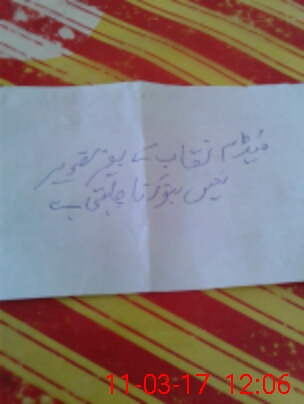 میڈم نقاب کے بغیر تصویر
نہیں بنوانا چاہتی ہے
11-03-17 12:06